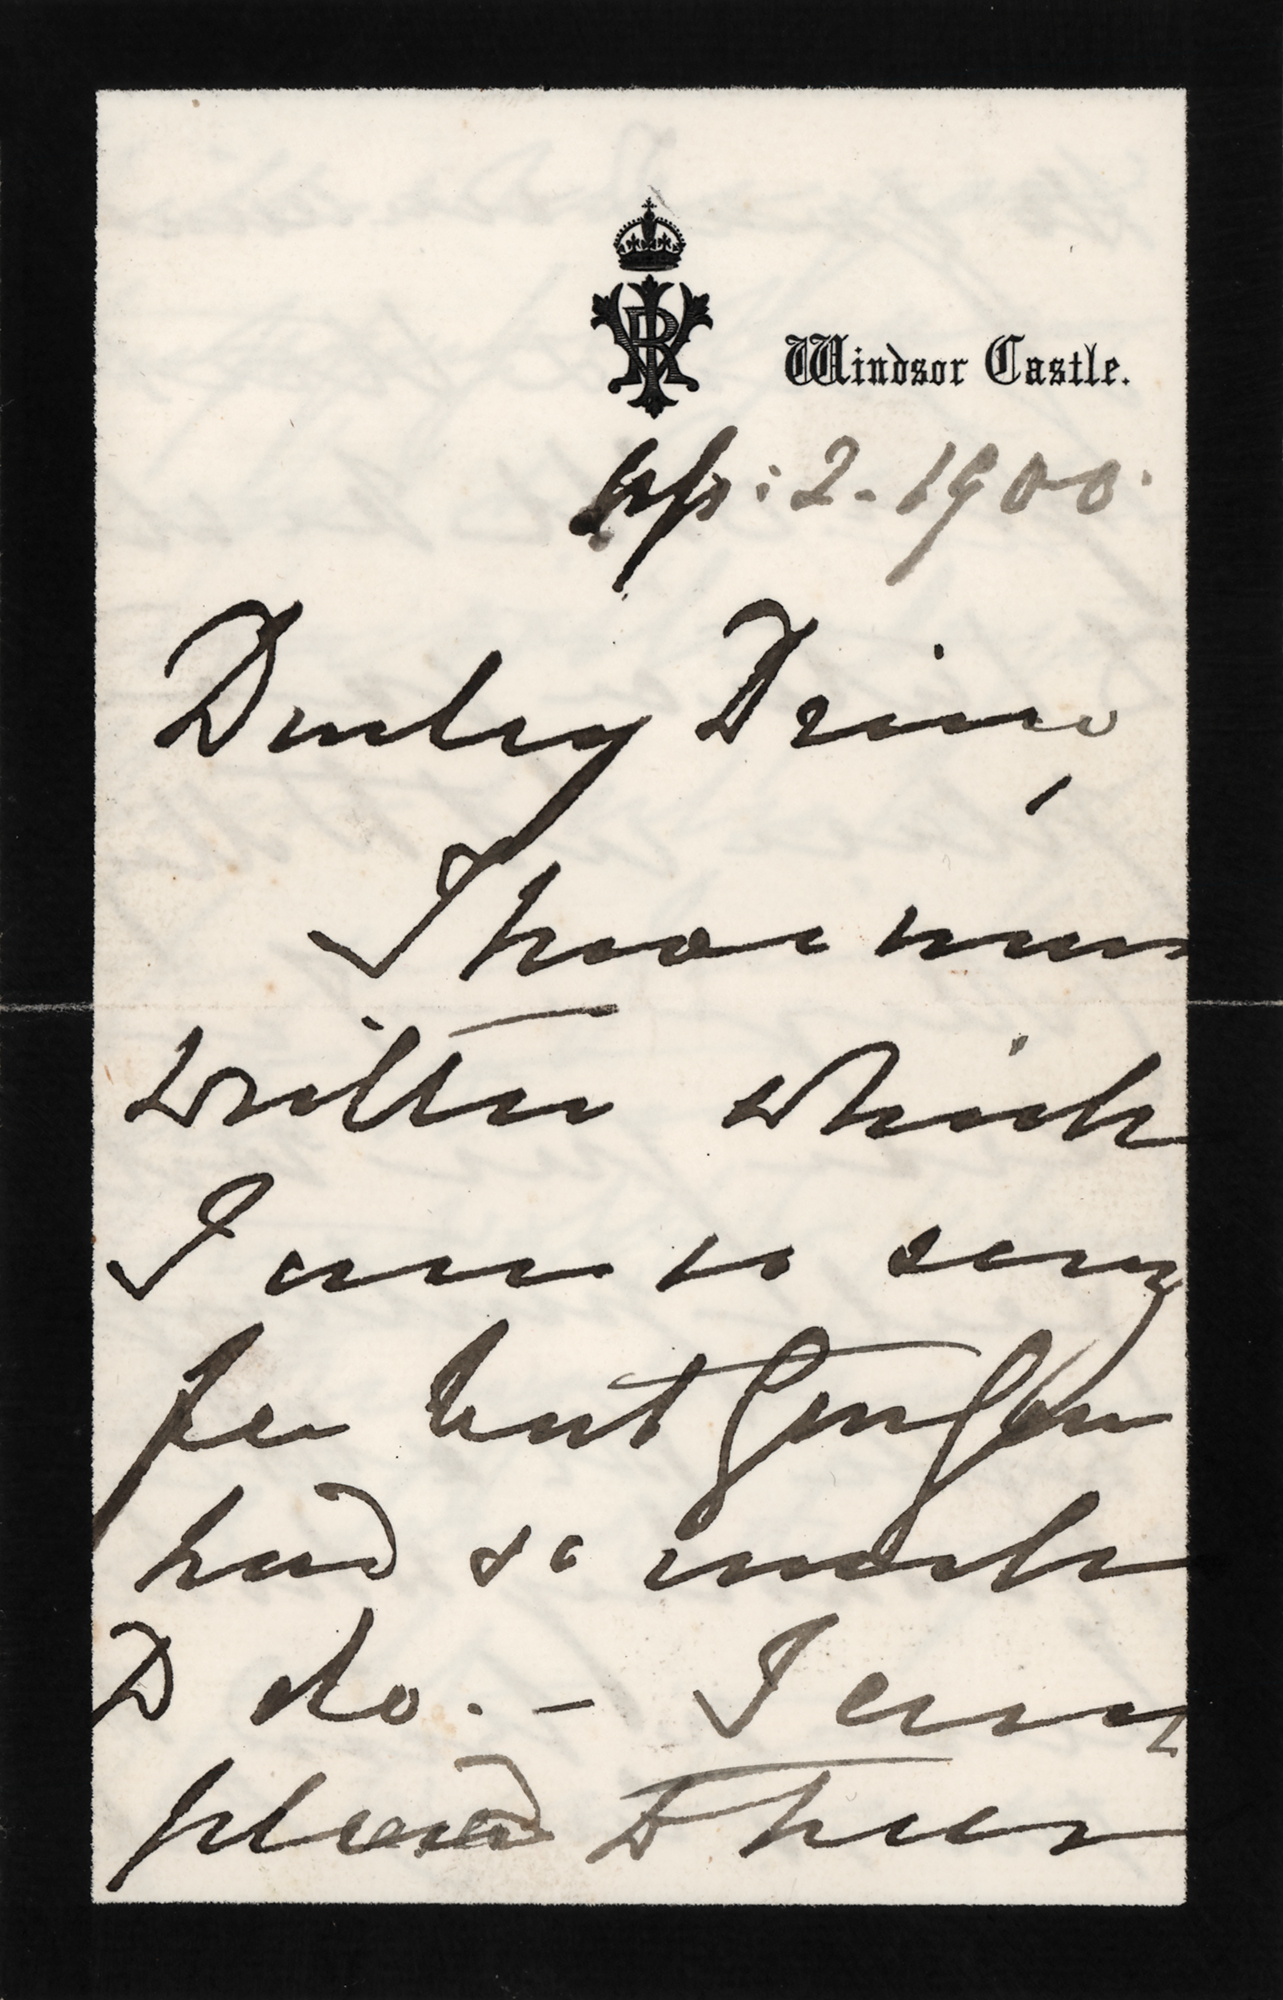 VRI
Windsor Castle.
Ap: 2. 1900.
Darling Drino,
I have never
written which
I am so sorry
for but GanGan
had so much
to do. – I am
pleased to hear